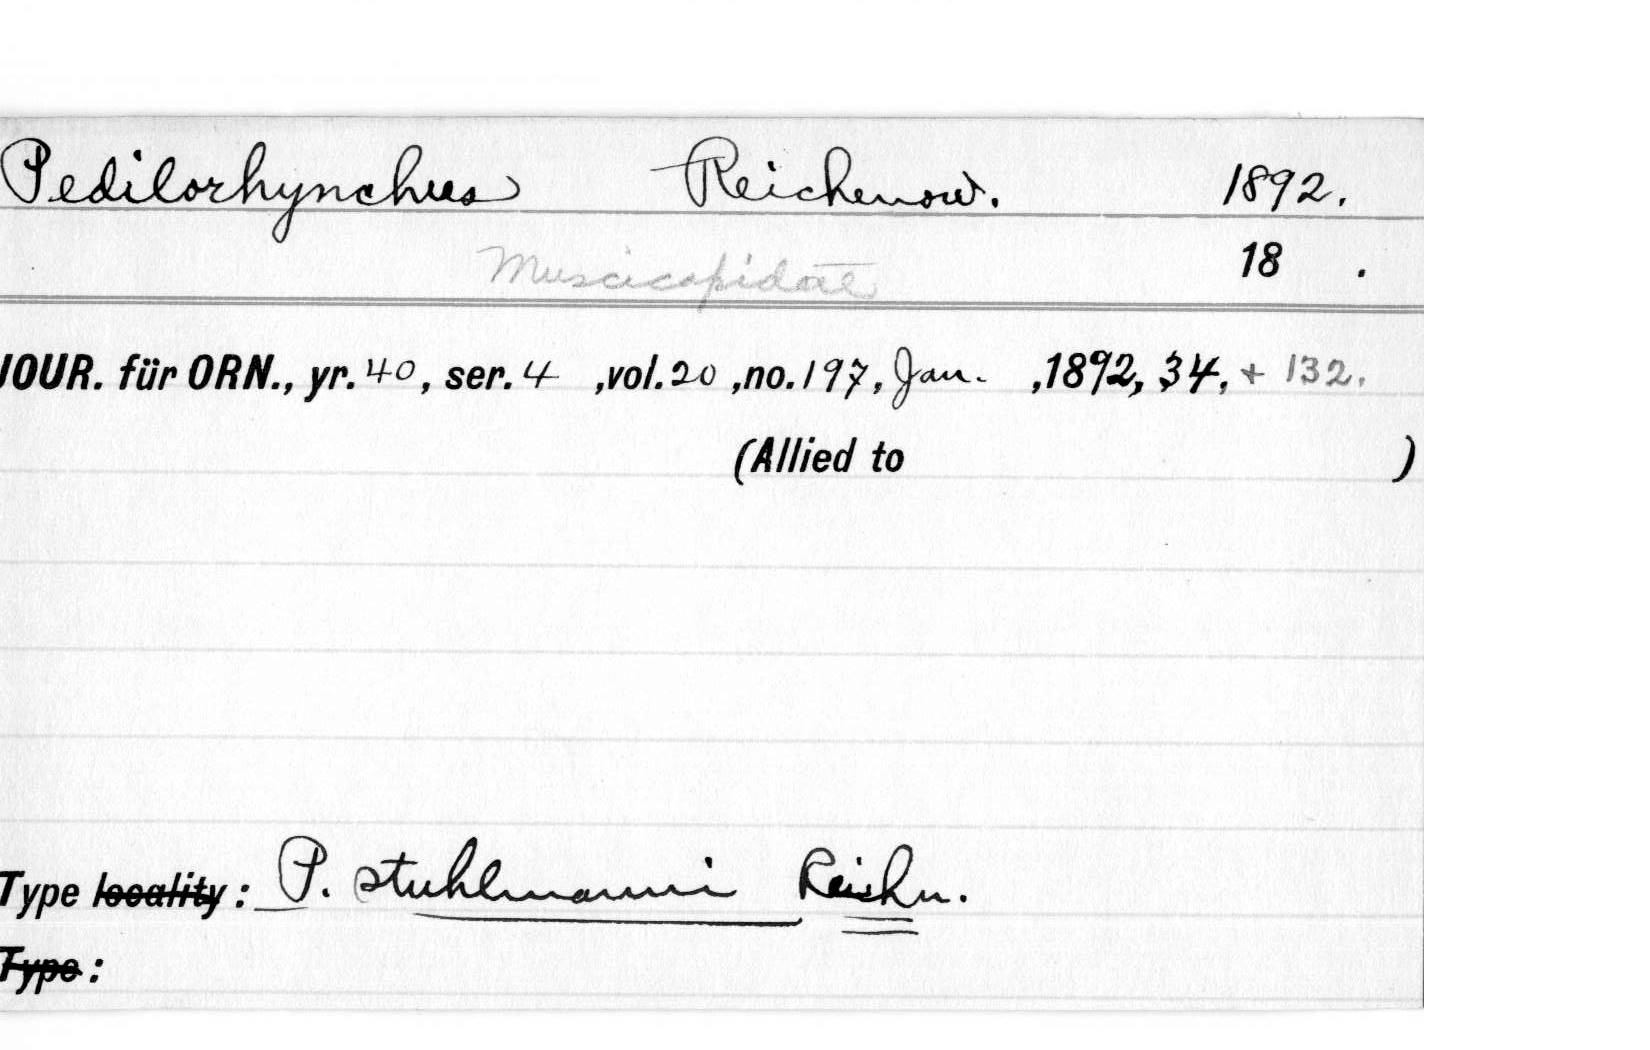 Pedilorhynchus Reichenow. 1892.
Muscicapidae 18 .
JOUR. für ORN., yr. 40, ser. 4 ,vol. 20 ,no. 197, Jan. ,1892, 34, + 132.
(Allied to )
Type locality : P. stuhlmanni Reichn.
Type :